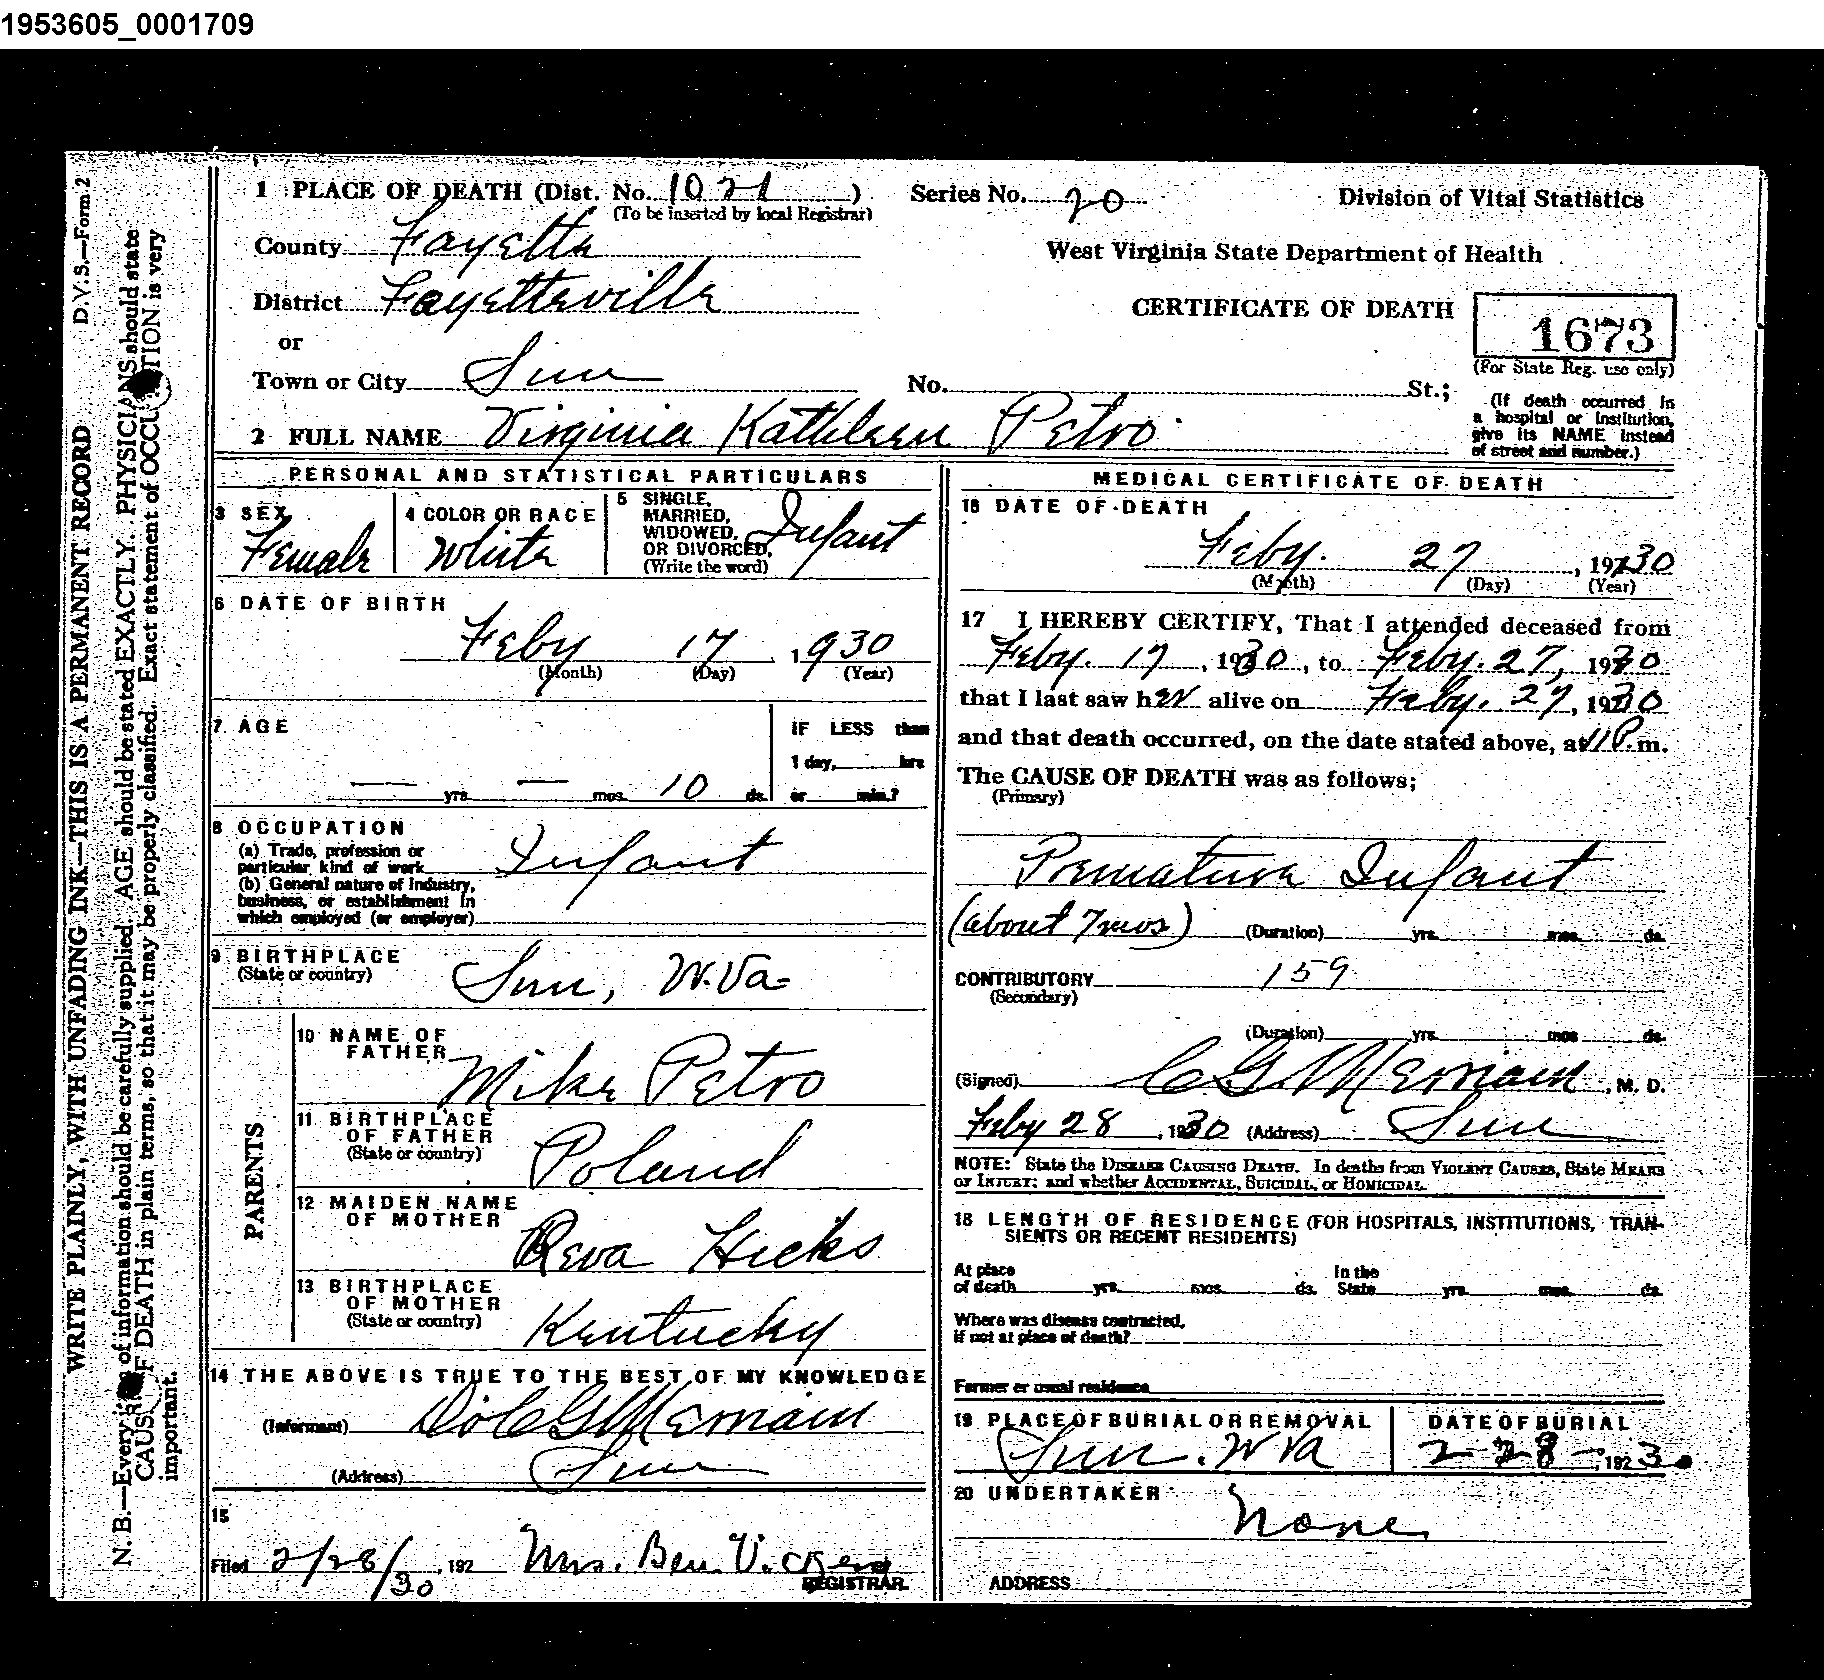 1953605_0001709
D.V.S.—Form 2
WRITE PLAINLY, WITH UNFADING INK—THIS IS A PERMANENT RECORD
N. B.—Every of information should be carefully supplied. AGE should be stated EXACTLY. PHYSICIANS should state
CAUSE OF DEATH in plain terms, so that it may be properly classified. Exact statement of OCCUPATION is very
important.
1 PLACE OF DEATH (Dist. No. 1021 ) Series No. 20 Division of Vital Statistics
(To be inserted by local Registrar)
County Fayette West Virginia State Department of Health
District Fayetteville CERTIFICATE OF DEATH 1673
or (For State Reg. use only)
Town or City Sun No. St.;
(If death occurred in
a hospital or institution,
give its NAME instead
of street and number.)
2 FULL NAME Virginia Kathleen Petro
PERSONAL AND STATISTICAL PARTICULARS
3 SEX
Female
4 COLOR OR RACE
White
5 SINGLE,
MARRIED,
WIDOWED,
OR DIVORCED,
(Write the word)
Infant
6 DATE OF BIRTH
Feby 17, 1930
(Month) (Day) (Year)
7 AGE
— yrs. — mos. 10 ds.
IF LESS than
1 day, hrs
or min.?
8 OCCUPATION
(a) Trade, profession or
particular kind of work Infant
(b) General nature of Industry,
business, or establishment in
which employed (or employer)
9 BIRTHPLACE
(State or country) Sun, W.Va
PARENTS
10 NAME OF
FATHER Mike Petro
11 BIRTHPLACE
OF FATHER
(State or country) Poland
12 MAIDEN NAME
OF MOTHER Reva Hicks
13 BIRTHPLACE
OF MOTHER
(State or country) Kentucky
14 THE ABOVE IS TRUE TO THE BEST OF MY KNOWLEDGE
(Informant) C G Merriam
(Address) Sun
15
Filed 2/28/30, 192 Mrs. Ben Vickers
REGISTRAR.
MEDICAL CERTIFICATE OF DEATH
16 DATE OF DEATH
Feby. 27, 1930
(Month) (Day) (Year)
17 I HEREBY CERTIFY, That I attended deceased from
Feby. 17, 1930, to Feby. 27, 1930
that I last saw her alive on Feby. 27, 1930
and that death occurred, on the date stated above, at 11 P. m.
The CAUSE OF DEATH was as follows;
(Primary)
Premature Infant
(about 7 mos) (Duration) yrs. mos. ds.
CONTRIBUTORY 159
(Secondary)
(Duration) yrs. mos. ds.
(Signed) C G Merriam, M. D.
Feby 28, 1930 (Address) Sun
NOTE: State the DISEASE CAUSING DEATH. In deaths from VIOLENT CAUSES, State MEANS
OF INJURY; and whether ACCIDENTAL, SUICIDAL, or HOMICIDAL.
18 LENGTH OF RESIDENCE (FOR HOSPITALS, INSTITUTIONS, TRAN-
SIENTS OR RECENT RESIDENTS)
At place In the
of death yrs. mos. ds. State yrs. mos. ds.
Where was disease contracted,
if not at place of death?
Former or usual residence
19 PLACE OF BURIAL OR REMOVAL
Sun, W Va
DATE OF BURIAL
2-28-, 1930
20 UNDERTAKER
None
ADDRESS